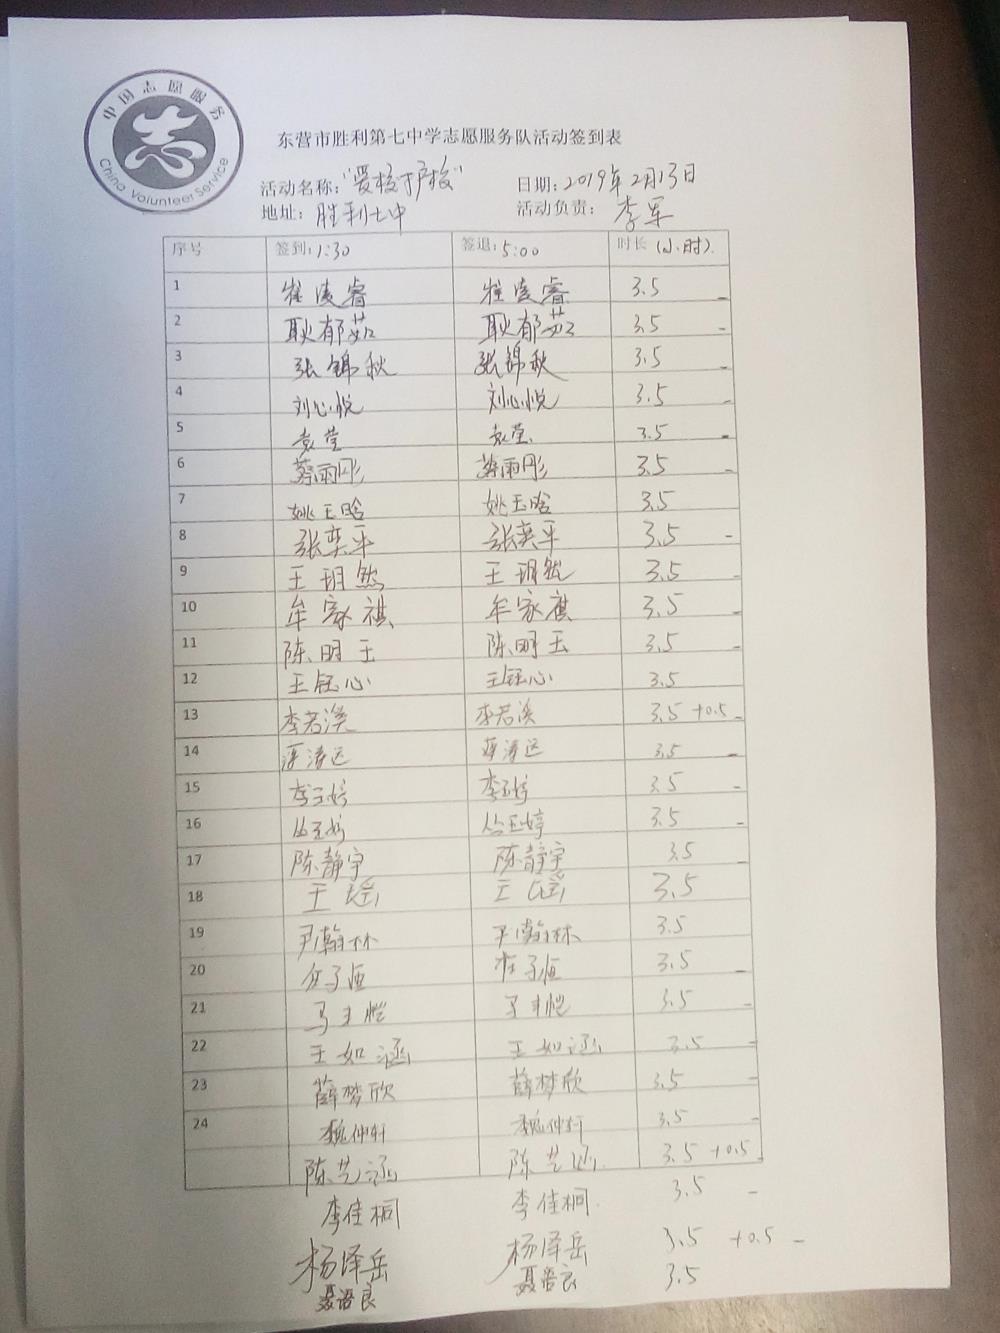 中国志愿服务
China Volunteer Service
东营市胜利第七中学志愿服务队活动签到表
活动名称："爱校护校" 日期：2019年2月13日
地址：胜利七中 活动负责：李军
序号 签到：1:30 签退：5:00 时长(小时).
1 崔凌睿 崔凌睿 3.5
2 耿郁茹 耿郁茹 3.5
3 张锦秋 张锦秋 3.5
4 刘心悦 刘心悦 3.5
5 袁莹 袁莹 3.5
6 蔡雨彤 蔡雨彤 3.5
7 姚玉晗 姚玉晗 3.5
8 张奕平 张奕平 3.5
9 王玥然 王玥然 3.5
10 牟家祺 牟家祺 3.5
11 陈明玉 陈明玉 3.5
12 王钰心 王钰心 3.5
13 李若溪 李若溪 3.5 +0.5
14 3.5
15 李玉婷 李玉婷 3.5
16 丛玉婷 丛玉婷 3.5
17 陈静宇 陈静宇 3.5
18 王瑶 王瑶 3.5
19 尹瀚林 尹瀚林 3.5
20 3.5
21 马丰恺 马丰恺 3.5
22 王如涵 王如涵 3.5
23 薛梦欣 薛梦欣 3.5
24 魏仲轩 魏仲轩 3.5
陈艺涵 陈艺涵 3.5 +0.5
李佳桐 李佳桐 3.5
杨泽岳 杨泽岳 3.5 +0.5
聂语良 聂语良 3.5